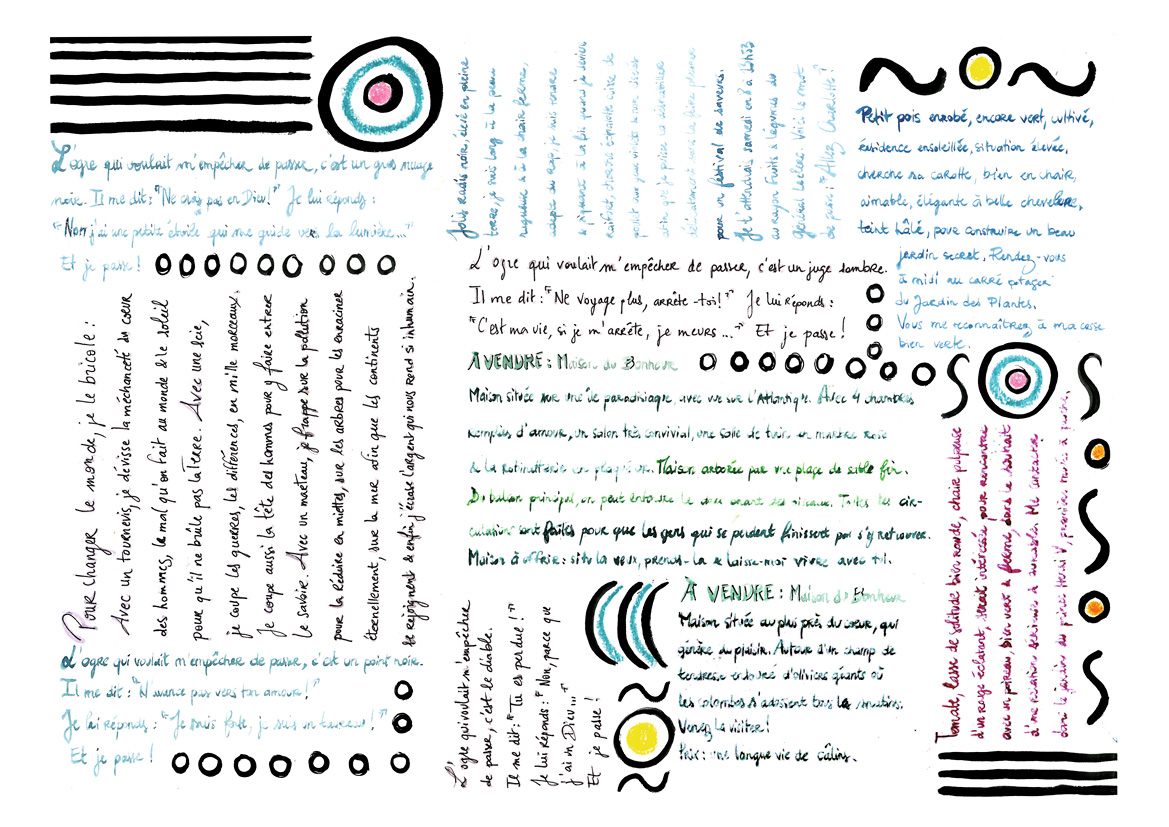 L'ogre qui voulait m'empêcher de passer, c'est un gros nuage
noir. Il me dit : "Ne crois pas en Dieu!" Je lui réponds :
"Non j'ai une petite étoile qui me guide vers la lumière..."
Et je passe !
Pour changer le monde, je le bricole :
Avec un tournevis, je dévisse la méchanceté du coeur
des hommes, le mal qu'on fait au monde & le soleil
pour qu'il ne brûle pas la Terre. Avec une scie,
je coupe les guerres, les différences, en mille morceaux.
Je coupe aussi la tête des hommes pour y faire entrer
le savoir. Avec un marteau, je frappe sur la pollution
pour la réduire en miettes, sur les arbres pour les enraciner
éternellement, sur la mer afin que les continents
se rejoignent & enfin j'écrase l'argent qui nous rend si inhumain.
L'ogre qui voulait m'empêcher de passer, c'est un point noir.
Il me dit : "N'avance pas vers ton amour !"
Je lui réponds : "Je suis forte, je suis un taureau !"
Et je passe !
Jolis radis noir, sucré en pleine
terre, je suis long à la peau
rugueuse & à la chair ferme,
& piquant à la fois quand je deviens
pour un festival de saveurs.
Je t'attendrais samedi en 8 à
au rayon fruits & légumes du
Général Leclerc. Voici le mot
de passe : "Allez Charlotte !"
L'ogre qui voulait m'empêcher de passer, c'est un juge sombre.
Il me dit : "Ne voyage plus, arrête-toi!" Je lui réponds :
"C'est ma vie, si je m'arrête, je meurs..." Et je passe !
A VENDRE : Maison du Bonheur
Maison située sur une île paradisiaque, avec vue sur l'Atlantique. Avec 4 chambres
remplies d'amour, un salon très convivial, une salle de bain en marbre rose
& la robinetterie en plaqué or. Maison arborée par une plage de sable fin.
Du balcon principal, on peut entendre le chant des oiseaux. Toutes les cir-
culations sont faites pour que les gens qui se perdent finissent par s'y retrouver.
Maison à offrir : si tu la veux, prends-la & laisse-moi vivre avec toi.
L'ogre qui voulait m'empêcher
de passer, c'est le diable.
Il me dit : "Tu es perdue !"
Je lui réponds : "Non, parce que
j'ai un Dieu..."
Et je passe !
À VENDRE : Maison du Bonheur
Maison située au plus près du coeur, qui
génère du plaisir. Autour d'un champ de
tendresse entouré d'oliviers géants où
les colombes s'adossent tous les matins.
Venez la visiter !
Prix : une longue vie de câlins.
Petit pois enrobé, encore vert, cultivé,
résidence ensoleillée, situation élevée,
cherche sa carotte, bien en chair,
aimable, élégante à belle chevelure,
teint hâlé, pour construire un beau
jardin secret. Rendez-vous
à midi au carré potager
du Jardin des Plantes.
Vous me reconnaîtrez à ma cosse
bien verte.
Tomate, lasse de solitude bien ronde, chair pulpeuse
d'un rouge éclatant, serait intéressée pour rencontre
avec un poireau, bien vert & ferme, dans le souhait
dans le jardin du